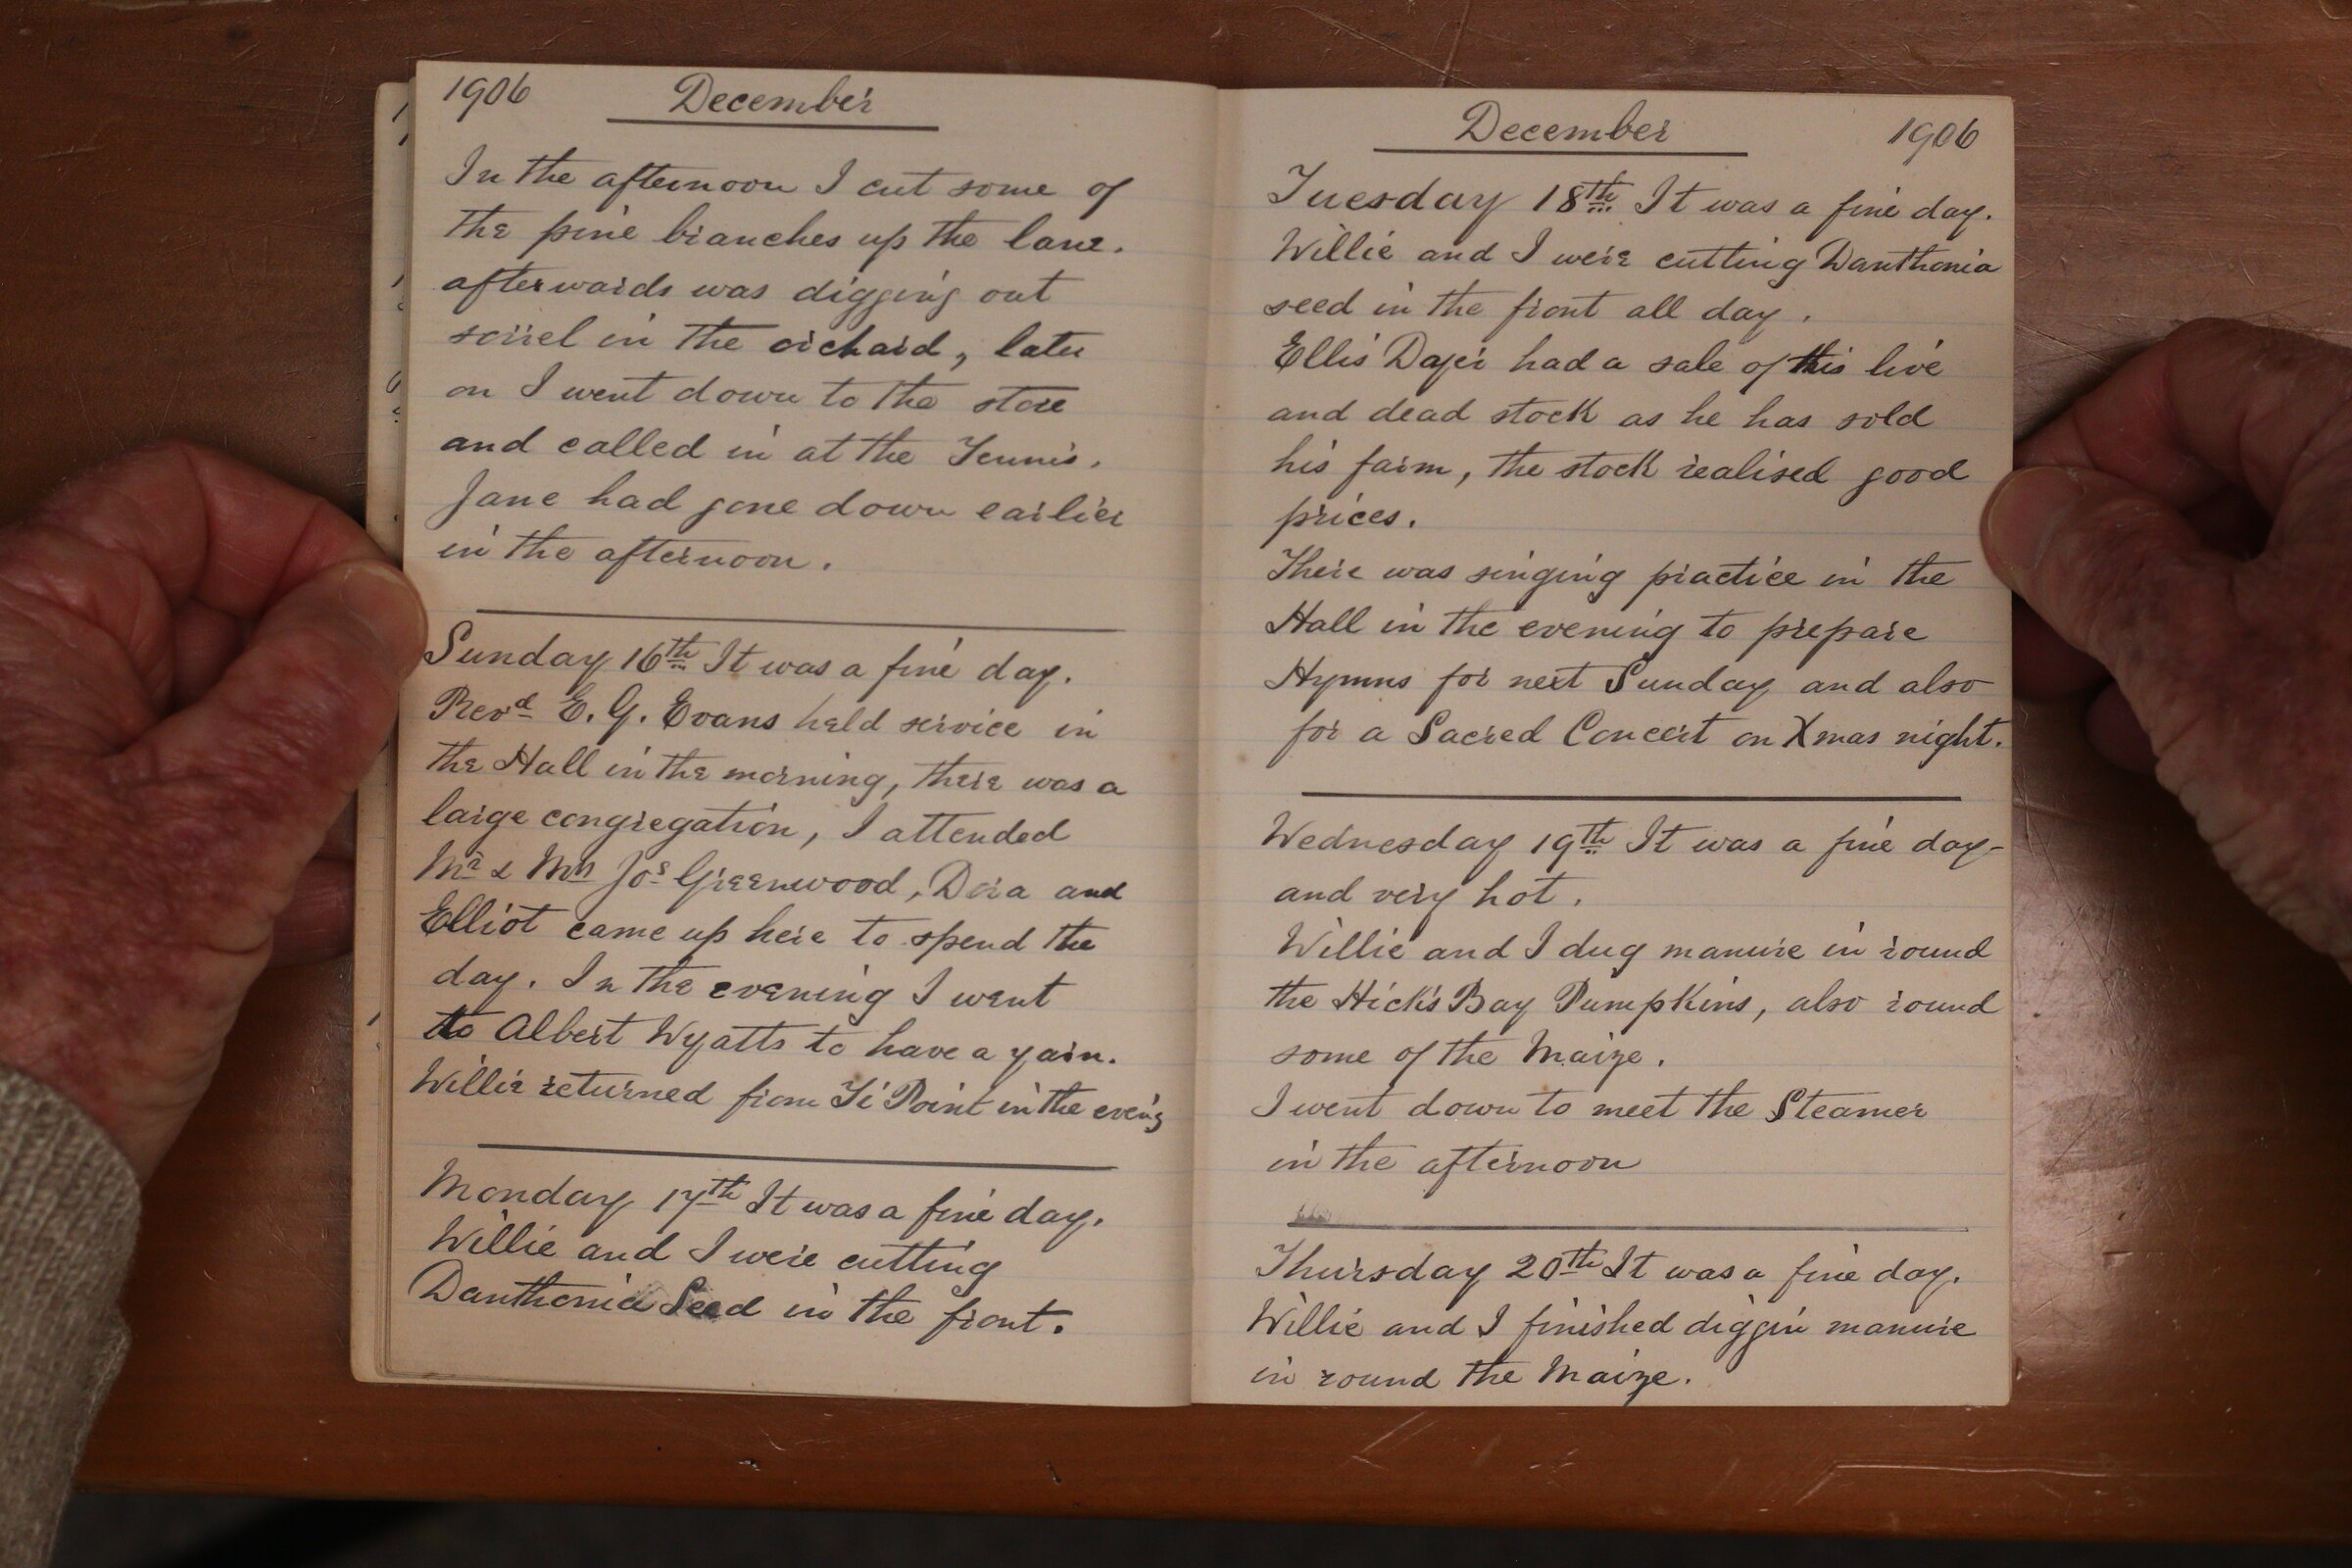 1906 December
In the afternoon I cut some of
the pine branches up the lane.
afterwards was digging out
sorrel in the orchard, later
on I went down to the store
and called in at the Tennis.
Jane had gone down earlier
in the afternoon.
Sunday 16th It was a fine day.
Revd E. G. Evans held service in
the Hall in the morning, there was a
large congregation, I attended
Mr & Mrs Jos Greenwood, Dora and
Elliot came up here to spend the
day. In the evening I went
to Albert Wyatts to have a yarn.
Willie returned from Ti Point in the even'g
Monday 17th It was a fine day.
Willie and I were cutting
Danthonia Seed in the front.
December 1906
Tuesday 18th It was a fine day.
Willie and I were cutting Danthonia
seed in the front all day.
Ellis had a sale of his live
and dead stock as he has sold
his farm, the stock realised good
prices.
There was singing practice in the
Hall in the evening to prepare
Hymns for next Sunday and also
for a Sacred Concert on Xmas night.
Wednesday 19th It was a fine day-
and very hot.
Willie and I dug manure in round
the Hick's Bay Pumpkins, also round
some of the Maize.
I went down to meet the Steamer
in the afternoon
Thursday 20th It was a fine day.
Willie and I finished diggin manure
in round the Maize.